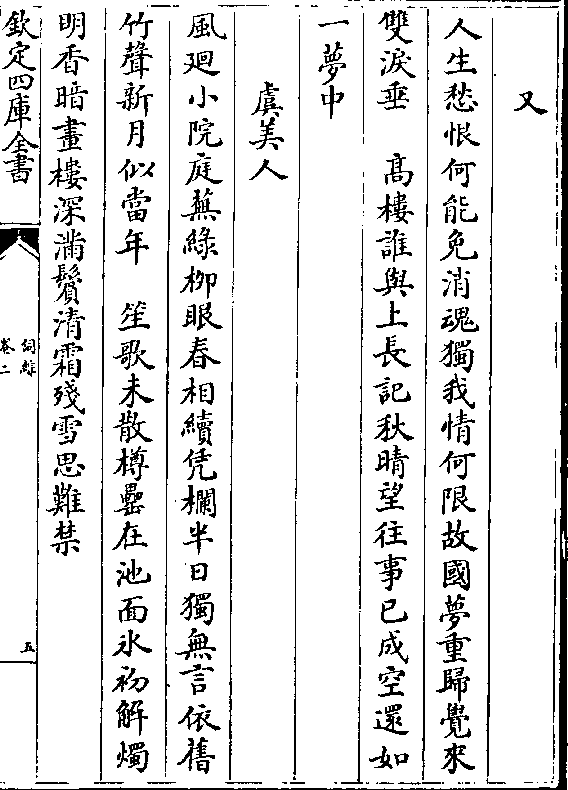 又
人生愁恨何能免消魂獨我情何限故國夢重歸覺來
雙淚垂　高樓誰與上長記秋晴望往事已成空還如
一夢中
虞美人
風廻小院庭蕪綠柳眼春相續凭欄半日獨無言依舊
竹聲新月似當年　笙歌未散樽罍在池面氷初解燭
明香暗畫樓深滿鬢清霜殘雪思難禁
欽定四庫全書
詞綜
卷二
五